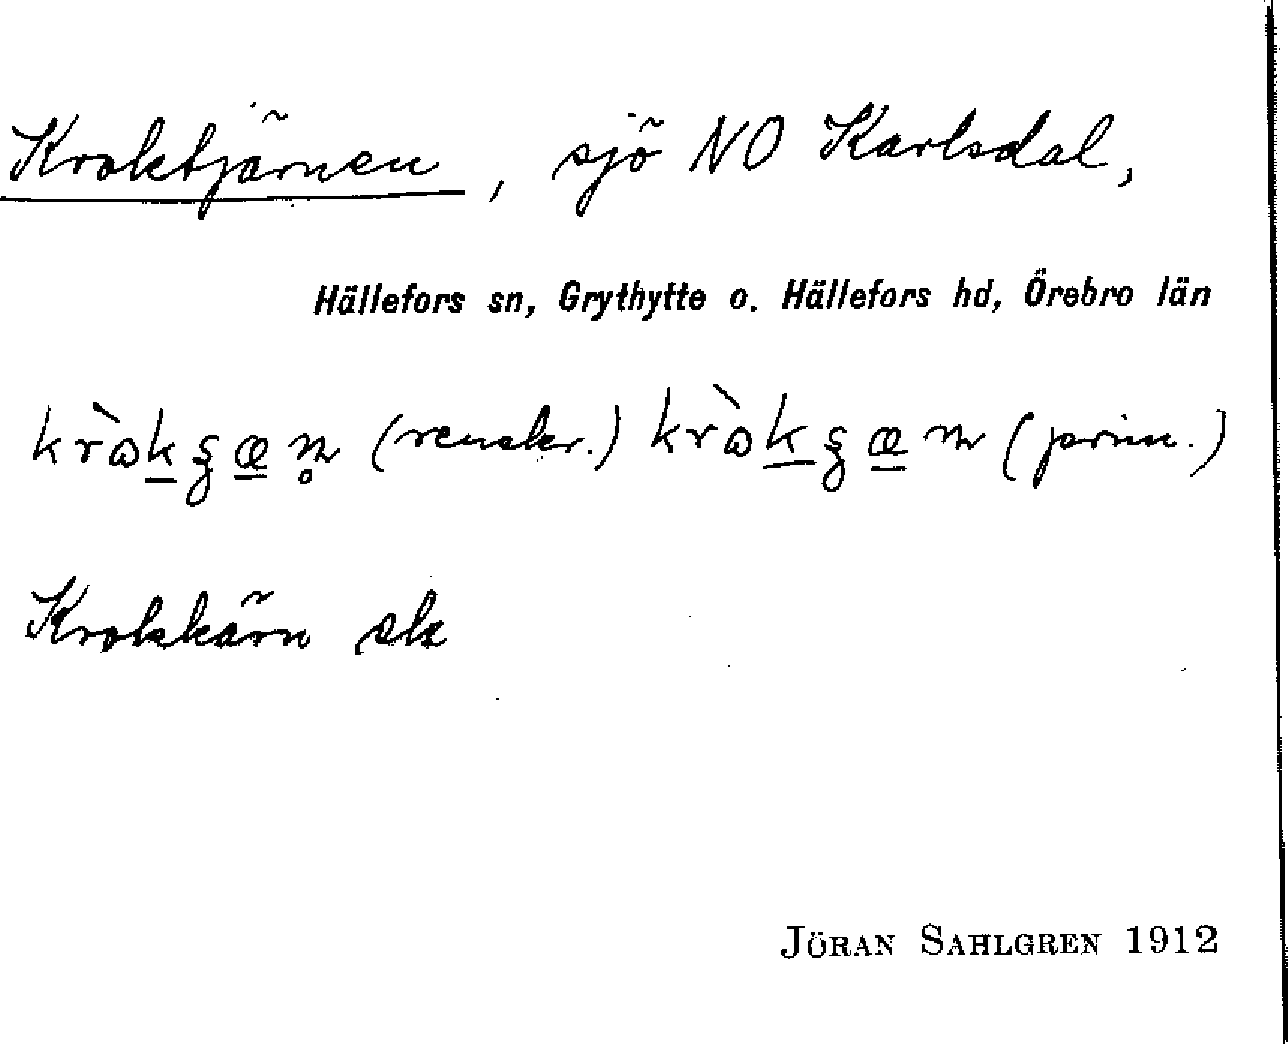 Kroktjärnen, sjö NO Karlsdal,
Hällefors sn, Grythytte o. Hällefors hd, Örebro län
(renskr.) (prim.)
Krokkärn sk
JÖRAN SAHLGREN 1912